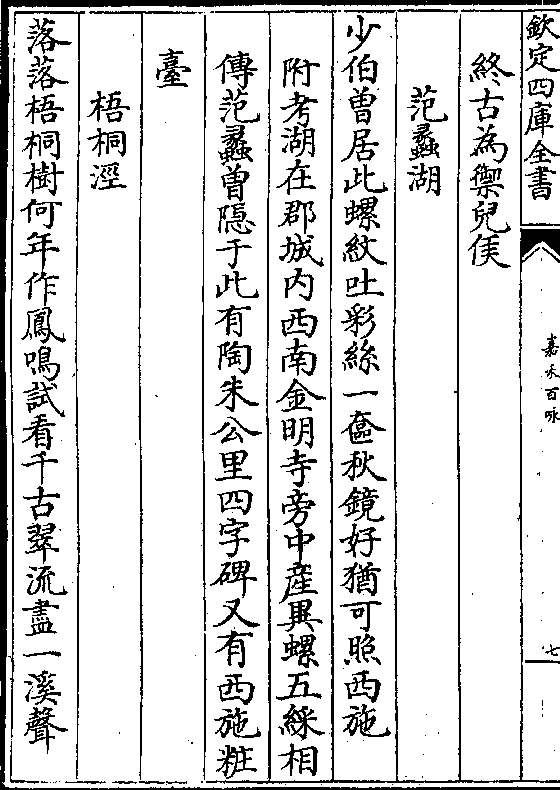 欽定四庫全書
嘉禾百咏
七
終古為禦兒侯
范蠡湖
少伯曾居此螺紋吐彩絲一奩秋鏡好猶可照西施
附考湖在郡城内西南金明寺旁中産異螺五綵相
傳范蠡曾隠于此有陶朱公里四字碑又有西施粧
臺
梧桐涇
落落梧桐樹何年作鳳鳴試看千古翠流盡一溪聲